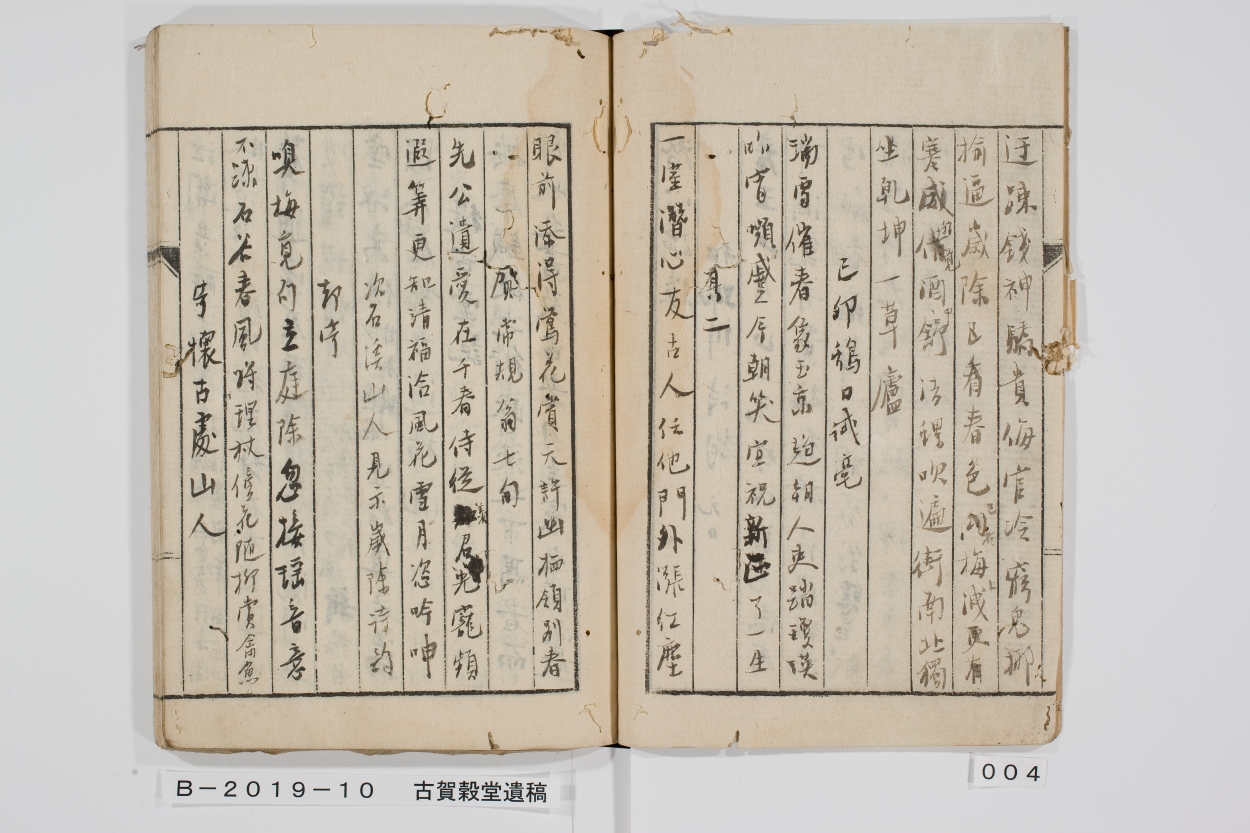 迂疎錢神驕貴侮官冷窮鬼揶
揄逼歲除且看春色 梅減更有
寒威 酒 吹遍街南北獨
坐乾坤一草廬
己卯鷄日試毫
瑞雪催春 玉京 朝人吏踏瓊瑛
昨宵顰蹙今朝笑宜祝新 了一生
其二
一 潛心友古人任他門外漲紅塵
眼前添得鶯花賞天許幽栖領別春
賀常規翁七旬
先公遺愛在千春侍從 君 寵頻
遐筭更知清福洽風花雪月恣吟呻
次石溪山人見示歲除詩韵
却寄
嗅梅覓句立庭除忽接瑤音意
不疎石谷春風將理杖 花隨柳賞禽魚
寄懷古處山人
B－2019－10 古賀穀堂遺稿
004